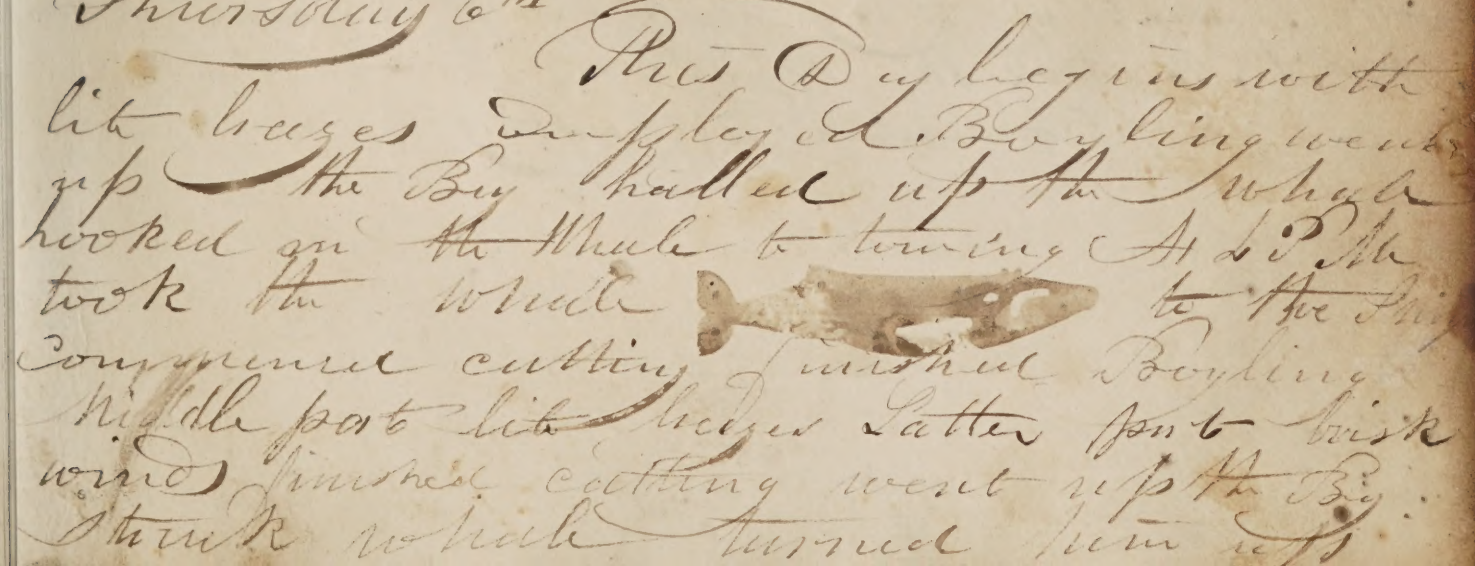 Thursday 6th
This Day begins with
lite brezes Employed Boyling went
up the Bay halled up the whale
hooked on the Whale to towing At P M
took the whale to the Ship
Commenced cutting finished Boyling
Middle part lite brezes Latter part brisk
winds finished cutting went up the Bay
Struck whale turned him up